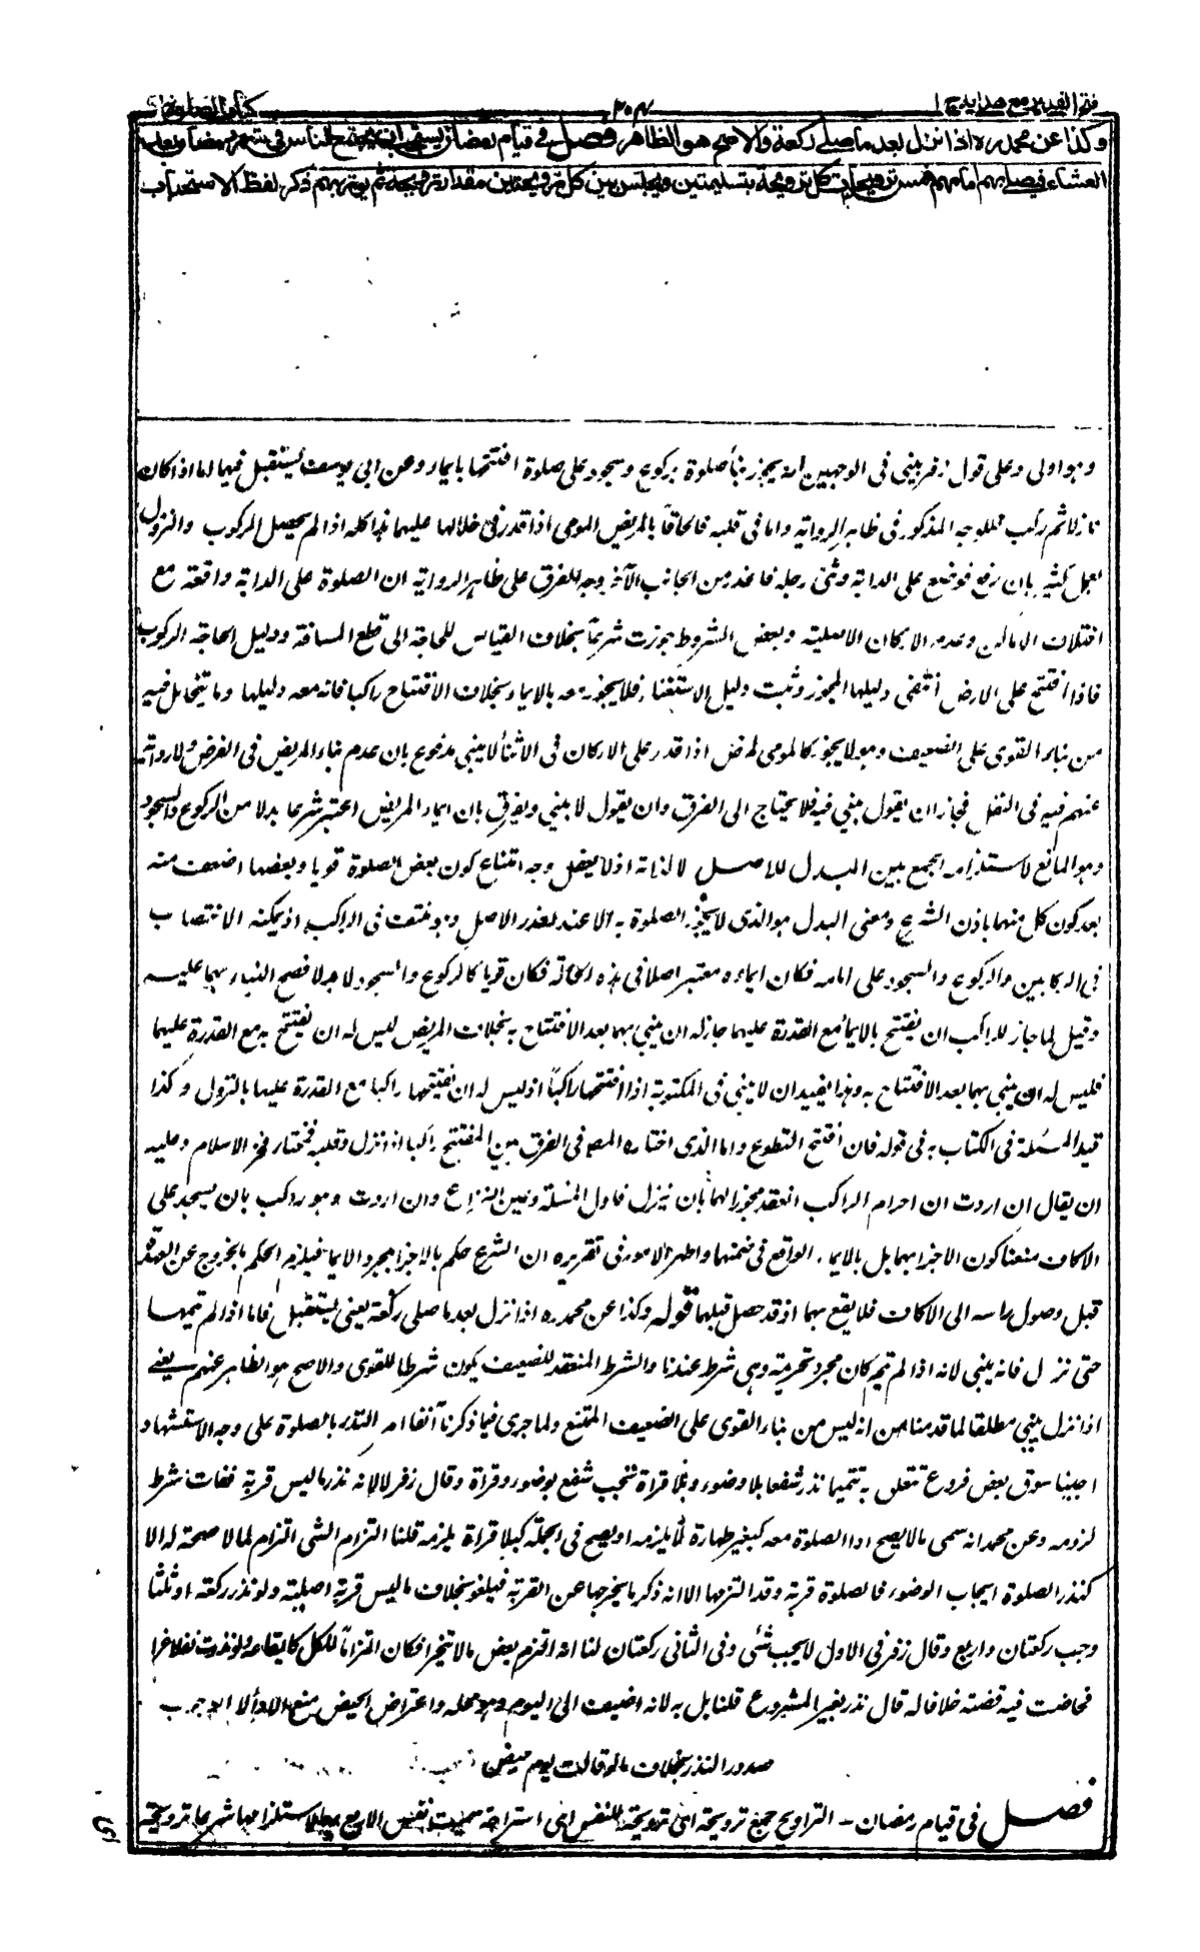 فتح القدير مع هدايه ج ١
٢٠٤
كتاب الصلوة
وكذا عن محمد ره اذا نزل بعد ما صلى ركعة والاصح هو الظاهر فصل في قيام رمضان يستحب ان يجتمع الناس في شهر رمضان بعد
العشاء فيصلى بهم امامهم خمس ترويحات كل ترويحة بتسليمتين ويجلس بين كل ترويحتين مقدار ترويحة ثم يوتر بهم ذكر لفظ الاستحباب
وهو اولى وعلى قول زفر يبنى فى الوجهين يجوز بناء صلوة بركوع وسجود على صلوة افتتحها بايماء وعن ابى يوسف يستقبل فيهما اما اذا كان
نازلا ثم ركب فللوجه المذكور فى ظاهر الرواية واما فى قلبه فالحاقا بالمريض المومى اذا قدر فى خلالها عليهما هذا كله اذا لم يحصل الركوب والنزول
بعمل كثير بان رفع فوضع على الدابة وثنى رجله فانحدر من الجانب الآخر وجه الفرق على ظاهر الرواية ان الصلوة على الدابة واقعة مع
اختلاف الاماكن وعدم الاركان الاصلية وبعض الشروط جوزت شرعا بخلاف القياس للحاجة الى قطع المسافة ودليل الحاجة الركوب
فاذا افتتح على الارض انتفى دليلها المجوز وثبت دليل الاستغناء فلا يجوز معه بالايماء بخلاف الافتتاح راكبا فانه معه دليلها وما يتخايل فيه
من بناء القوى على الضعيف وهو لا يجوز كالمومى لمرض اذا قدر على الاركان فى الاثناء لا يبنى مدفوع بان عدم بناء المريض فى الفرض ولا رواية
عنهم فيه فى النفل فجاز ان يقول يبنى فيه فلا يحتاج الى الفرق وان يقول لا يبنى ويفرق بان ايماء المريض اعتبر شرعا بدلا من الركوع والسجود
وهو المانع لاستلزامه الجمع بين البدل للاصل لا لذاته اذ لا يعقل وجه امتناع كون بعض الصلوة قويا وبعضها اضعف منه
بعد كون كل منهما باذن الشرع ومعنى البدل هو الذى لا يجوز الصلوة به الا عند تعذر الاصل وهو منتف فى الراكب اذ يمكنه الانتصاب
فى الركابين والركوع والسجود على امامه فكان ايماءه معتبر اصلا فى هذه الحالة فكان قويا كالركوع والسجود لا بدلا فصح البناء بهما عليه
وقيل لما جاز للراكب ان يفتتح بالايماء مع القدرة عليهما جاز له ان يبنى بهما بعد الافتتاح به بخلاف المريض ليس له ان يفتتح به مع القدرة عليهما
فليس له ان يبنى بهما بعد الافتتاح به وهذا يفيد ان لا يبنى فى المكتوبة اذا افتتحها راكبا اذ ليس له ان يفتتحها راكبا مع القدرة عليها بالنزول وكذا
قيد المسئلة فى الكتاب به فى قوله فان افتتح التطوع واما الذى اختاره المص فى الفرق بين المفتتح راكبا اذا نزل وقلبه فمختار فخر الاسلام وعليه
ان يقال ان اردت ان احرام الراكب انعقد مجوزا لهما بان ينزل فاول المسئلة وعين النزاع وان اردت وهو راكب بان يسجد على
الاكاف منعنا كون الاجزاء بهما بل بالايماء الواقع فى ضمنها واظهر الامور فى تقريره ان الشرع حكم بالاجزاء بمجرد الايماء فيلزم الحكم بالخروج عن العهدة
قبل وصول راسه الى الاكاف فلا يقع بهما اذ قد حصل قبلهما قوله وكذا عن محمد ره اذا نزل بعد ما صلى ركعة يعنى يستقبل فاما اذا لم يتمها
حتى نزل فانه يبنى لانه اذا لم تتم كان مجرد تحريمة وهى شرط عندنا والشرط المنعقد للضعيف يكون شرطا للقوى والاصح هو الظاهر عنهم يعنى
اذا نزل يبنى مطلقا لما قدمنا من انه ليس من بناء القوى على الضعيف الممتنع ولما جرى فيما ذكرنا آنفا امر النذر بالصلوة على وجه الاستشهاد
احببنا سوق بعض فروع تتعلق به تتميما نذر شفعا بلا وضوء وبلا قراة تجب شفع بوضوء وقراة وقال زفر لا لانه نذر ما ليس قربة ففات شرط
لزومه وعن محمد انه سمى ما لا يصح اداء الصلوة معه كبغير طهارة لا يلزمه او يصح فى الجملة كبلا قراة يلزمه قلنا التزام الشى التزام لما لا صحة له الا
كنذر الصلوة ايجاب الوضوء فالصلوة قربة وقد التزمها الا انه ذكر ما يخرجها عن القربة فيلغو بخلاف ما ليس قربة اصلية ولو نذر ركعة او ثلثا
وجب ركعتان واربع وقال زفر فى الاول لا يجب شئى وفى الثانى ركعتان لنا انه التزم بعض ما لا يتجزأ فكان التزاما للكل كايقاعه ولو نذرت نفلا غدا
فحاضت فيه قضته خلافا له قال نذر بغير المشروع قلنا بل به لانه اضيف الى اليوم وهو محله واعتراض الحيض منع الاداء لا الوجوب
صدور النذر بخلاف ما لو قالت يوم حيضى
فصل فى قيام رمضان - التراويح جمع ترويحة اى ترويحة للنفس اى استراحة سميت نفس الاربع بها لاستلزامها شرعا ترويحة